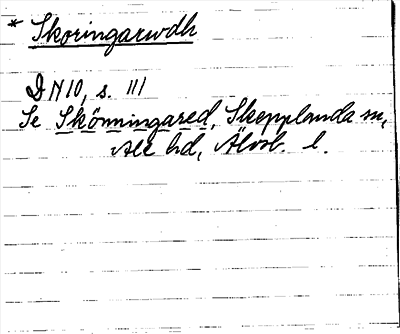 * Skoringarwdh
DN 10, s. 111
Se Skönningared, Skepplanda sn,
Ale hd, Älvsb. l.